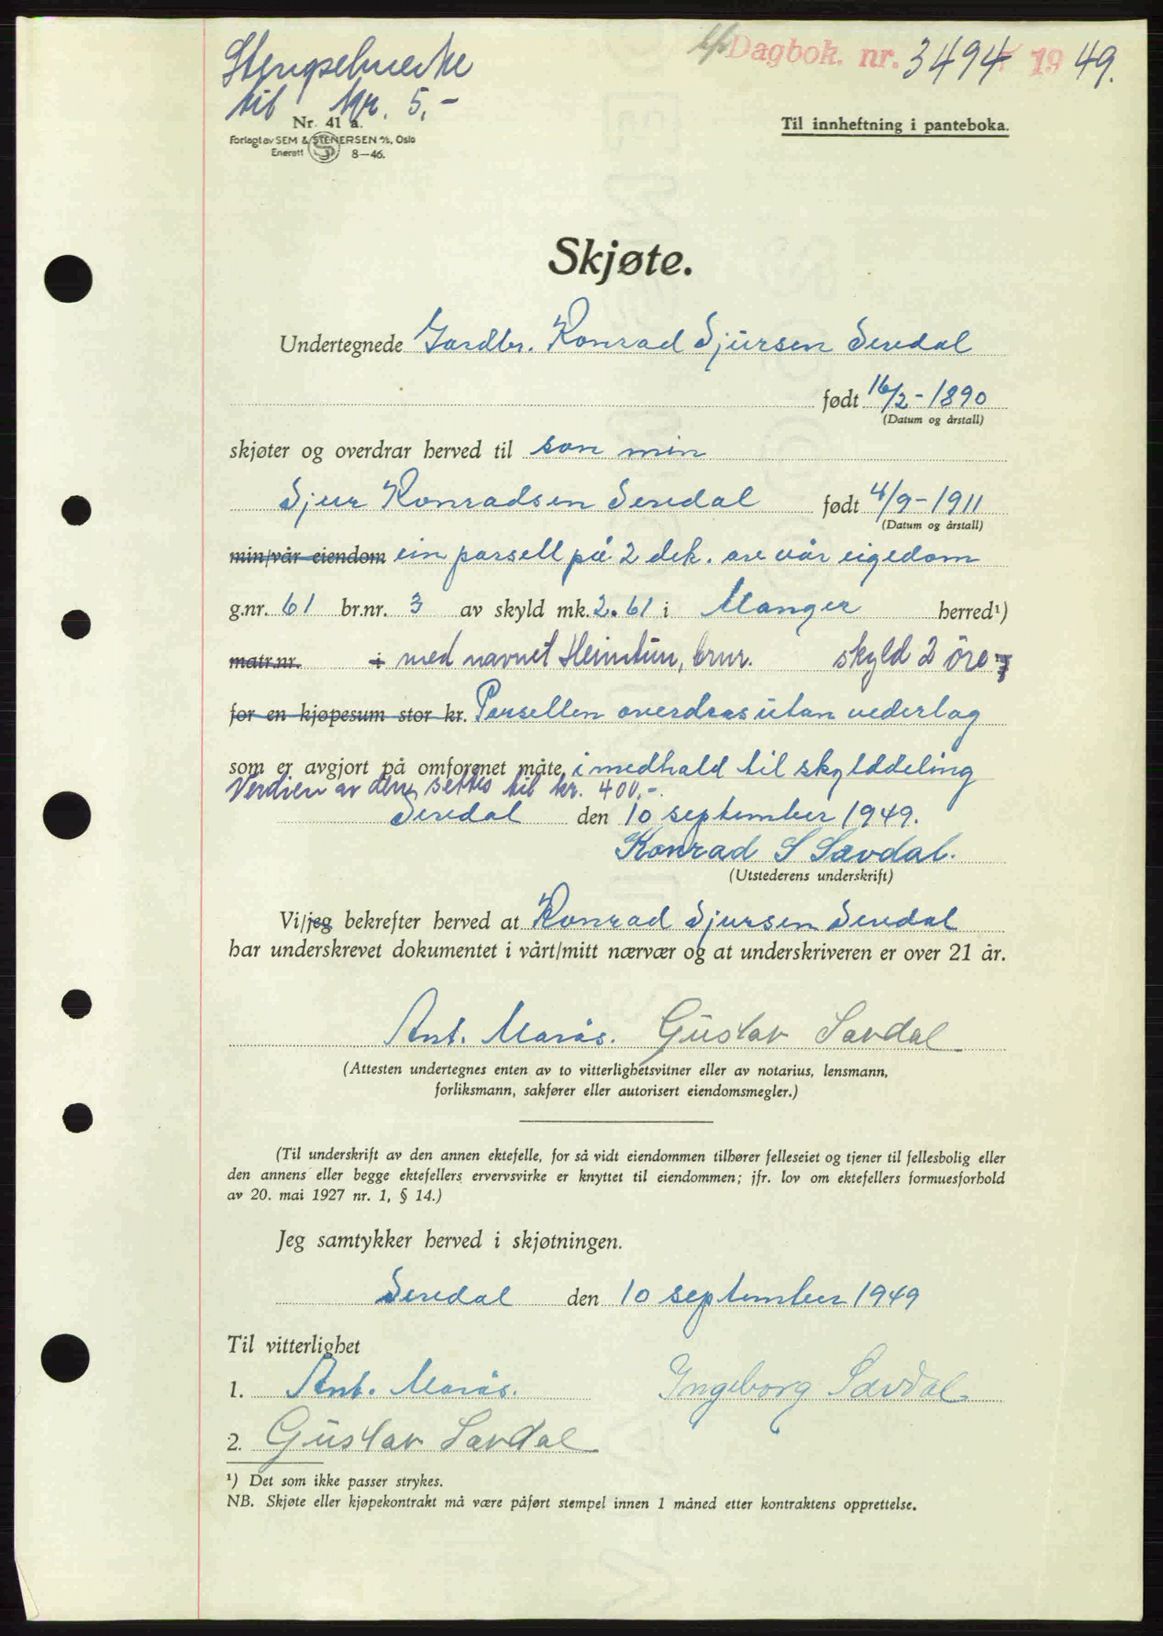 Stempelmerke
til kr. 5,-
Dagbok. nr. 3494 1949.
Nr. 41 a.
Forlagt av SEM & STENERSEN A/S, Oslo
Enerett 8—46.
Til innheftning i panteboka.
Skjøte.
Undertegnede Gardbr. Konrad Sjursen Sævdal
født 16/2-1890
(Datum og årstall)
skjøter og overdrar herved til son min
Sjur Konradsen Sævdal født 4/9-1911
(Datum og årstall)
min/vår eiendom ein parsell på 2 dek. are vår eigedom
g.nr. 61 br.nr. 3 av skyld mk. 2.61 i Manger herred¹)
matr.nr. i med navnet Heimtun, brnr. skyld 2 öre
for en kjøpesum stor kr. Parsellen overdras utan vederlag
som er avgjort på omforenet måte, i medhald til skylddeling
Verdien av den settes til kr. 400,-.
Sævdal den 10 september 1949.
Konrad S Sævdal.
(Utstederens underskrift)
Vi/jeg bekrefter herved at Konrad Sjursen Sævdal
har underskrevet dokumentet i vårt/mitt nærvær og at underskriveren er over 21 år.
Ant. Marås. Gustav Sævdal
(Attesten undertegnes enten av to vitterlighetsvitner eller av notarius, lensmann,
forliksmann, sakfører eller autorisert eiendomsmegler.)
(Til underskrift av den annen ektefelle, for så vidt eiendommen tilhører felleseiet og tjener til fellesbolig eller
den annens eller begge ektefellers ervervsvirke er knyttet til eiendommen; jfr. lov om ektefellers formuesforhold
av 20. mai 1927 nr. 1, § 14.)
Jeg samtykker herved i skjøtningen.
Sævdal den 10 september 1949
Til vitterlighet
1. Ant. Marås. Ingeborg Sævdal.
2. Gustav Sævdal
¹) Det som ikke passer strykes.
NB. Skjøte eller kjøpekontrakt må være påført stempel innen 1 måned etter kontraktens opprettelse.